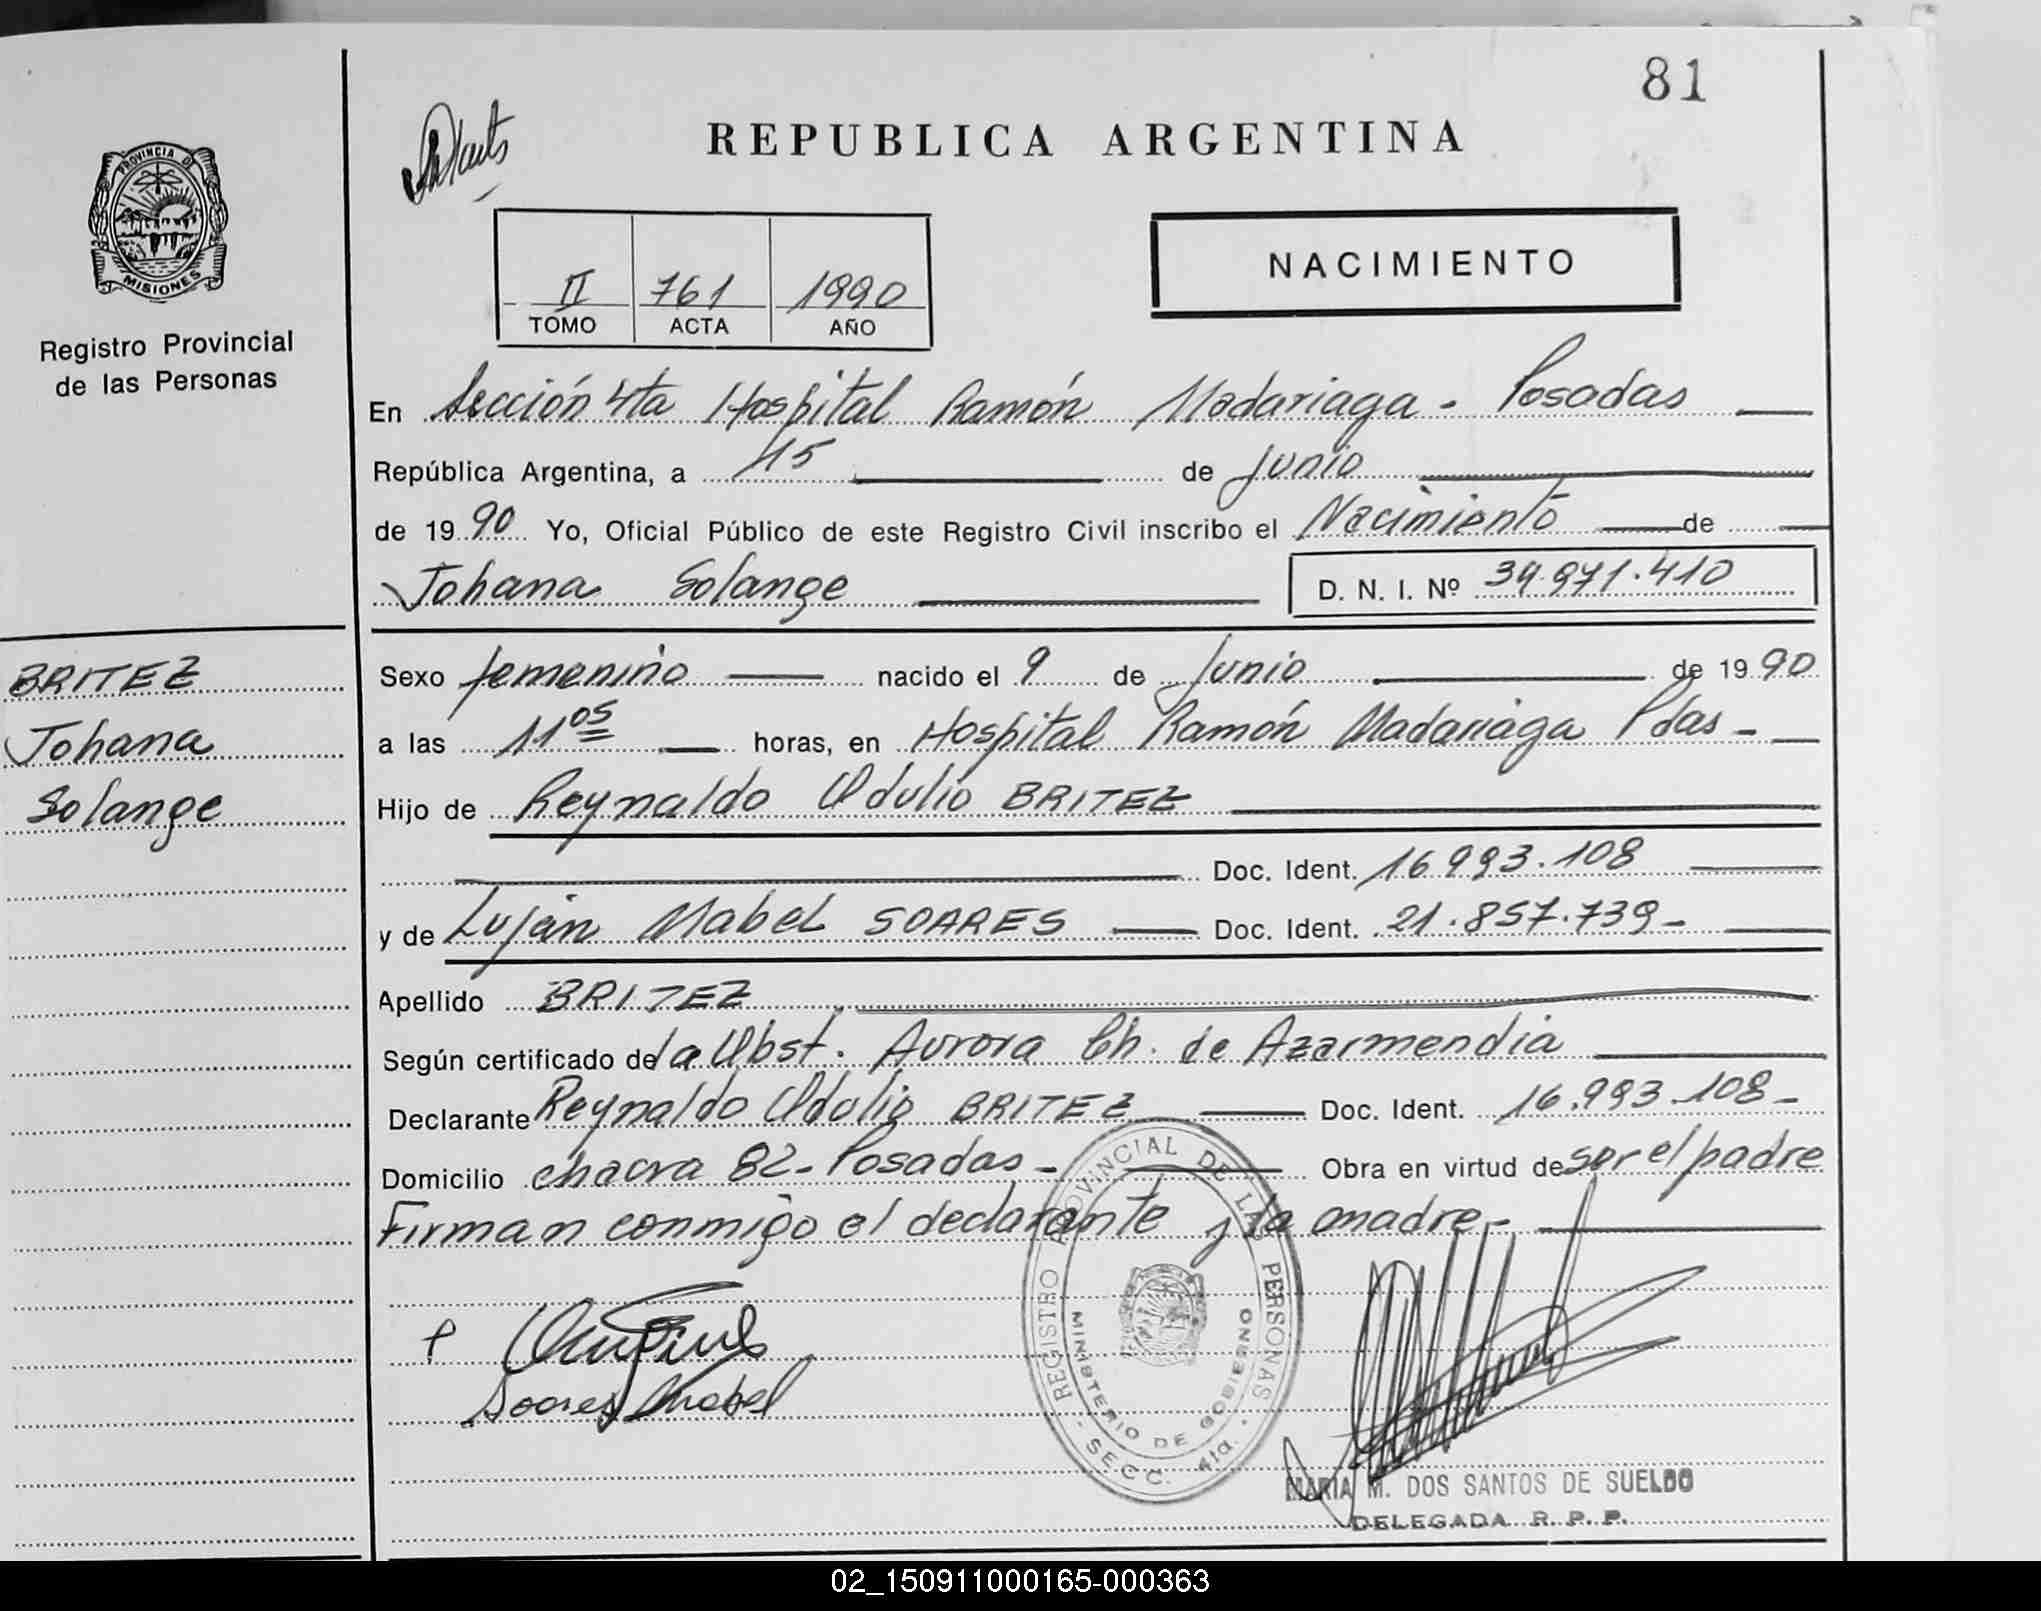 81
REPUBLICA ARGENTINA
PROVINCIA D
MISIONES
Registro Provincial
de las Personas
II 761 1990
TOMO ACTA AÑO
NACIMIENTO
En Sección 4ta Hospital Ramón Madariaga - Posadas
República Argentina, a 15 de junio
de 19 90 Yo, Oficial Público de este Registro Civil inscribo el Nacimiento de
Johana Solange D. N. I. Nº 34.971.410
BRITEZ
Johana
Solange
Sexo femenino nacido el 9 de Junio de 19 90
a las 11 05 horas, en Hospital Ramón Madariaga Pdas -
Hijo de Reynaldo Odulio BRITEZ
Doc. Ident. 16.993.108
y de Luján Mabel SOARES Doc. Ident. 21.857.739-
Apellido BRITEZ
Según certificado de la Obst. Aurora Ch. de Azarmendia
Declarante Reynaldo Odulio BRITEZ Doc. Ident. 16.993.108-
Domicilio chacra 82- Posadas - Obra en virtud de ser el padre
Firman conmigo el declarante y la madre.-
Soares Mabel
REGISTRO PROVINCIAL DE LAS PERSONAS
MINISTERIO DE GOBIERNO
- SECC. 4ta. -
MARIA M. DOS SANTOS DE SUELDO
DELEGADA R. P. P.
02_150911000165-000363